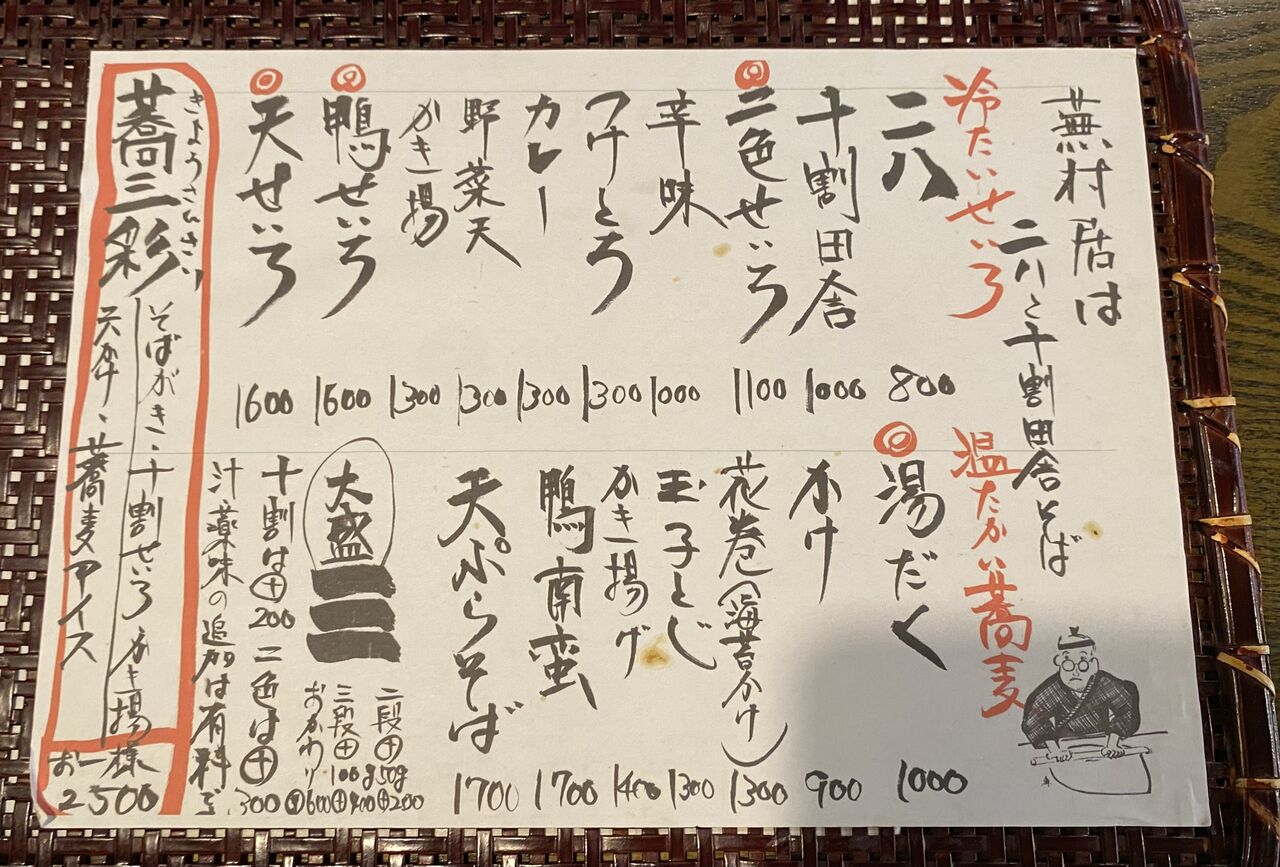 蕪村居は
二八と十割田舎そば
冷たいせいろ
二八 800
十割田舎 1000
二色せいろ 1100
辛味 1000
つけとろ 1300
カレー 1300
野菜天 1300
かき揚 1300
鴨せいろ 1600
天せいろ 1600
温たかい蕎麦
湯だく 1000
かけ 900
花巻(海苔かけ) 1300
玉子とじ 1300
かき揚げ 1400
鴨南蛮 1700
天ぷらそば 1700
大盛
二段㊉50g ㊉200
三段㊉100g ㊉400
おかわり ㊉600
十割は㊉200 二色は㊉300
汁薬味の追加は有料
きょうさんさい
蕎三彩
そばがき・十割せいろ かき揚
天かけ、蕎麦アイス
お一様
2500